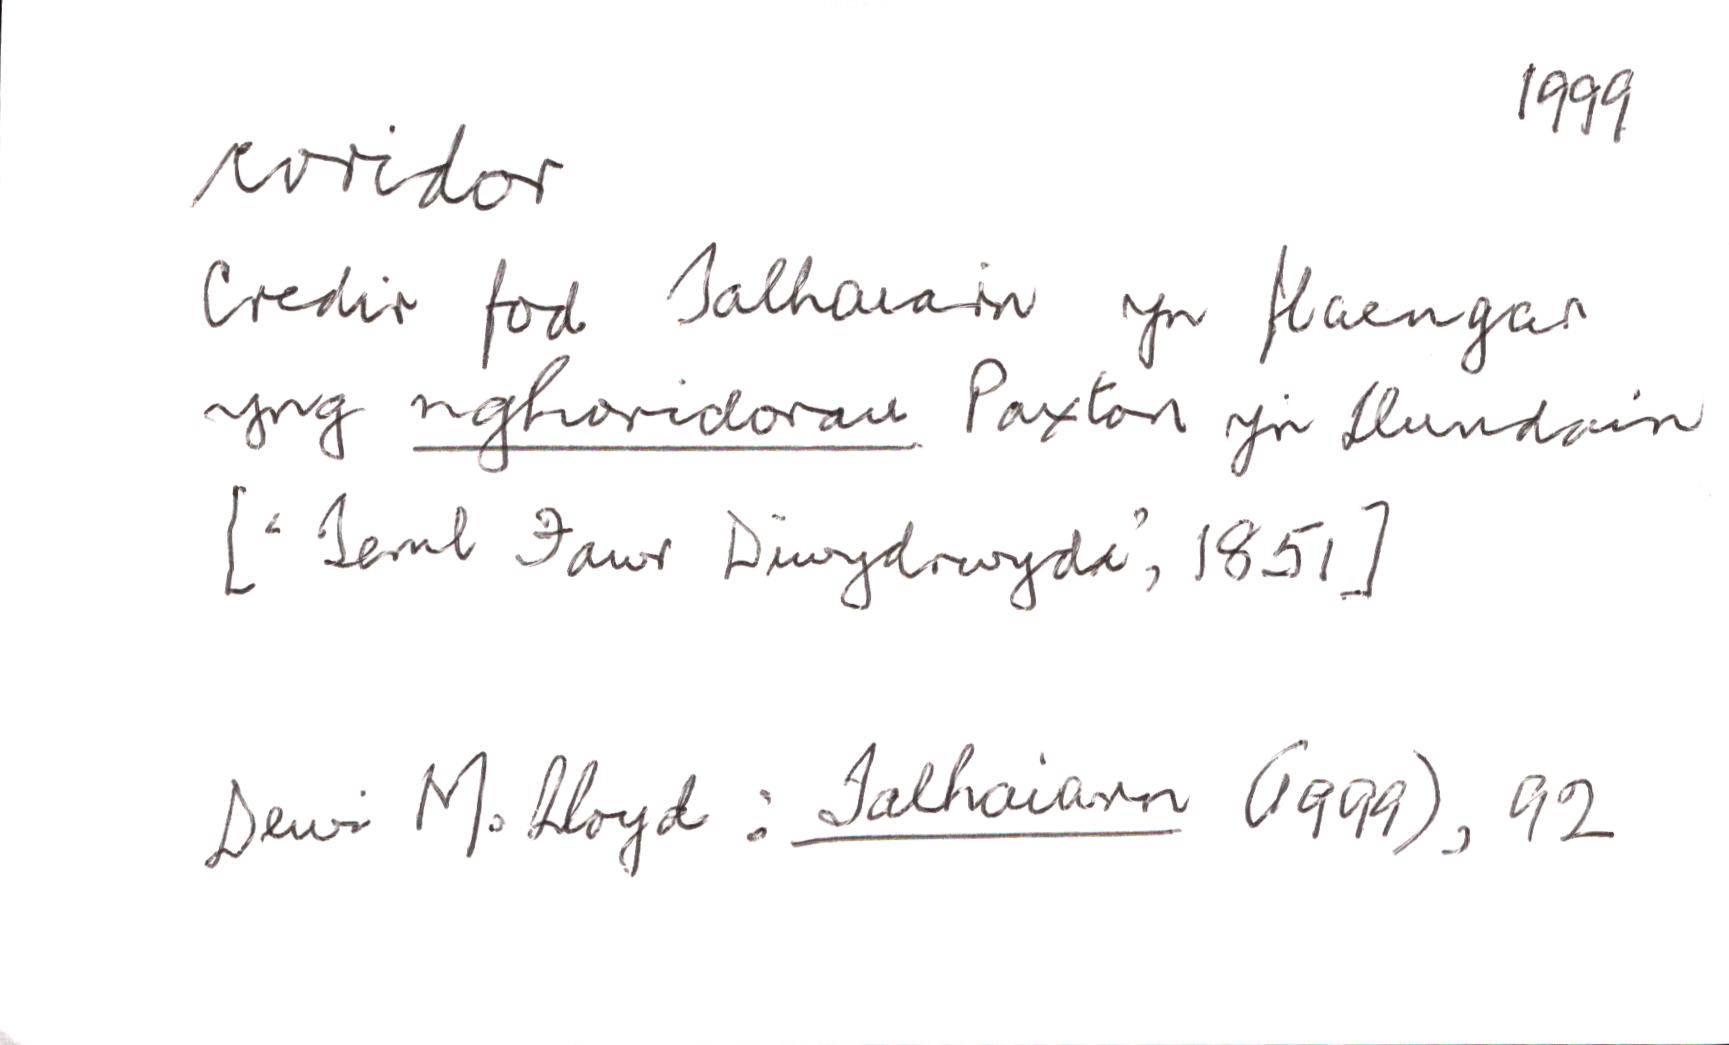 1999
coridor
Credir fod Talhaiarn yn flaengar
yng nghoridorau Paxton yn Llundain
[‘Teml Fawr Diwydrwydd’, 1851]
Dewi M. Lloyd : Talhaiarn (1999), 92